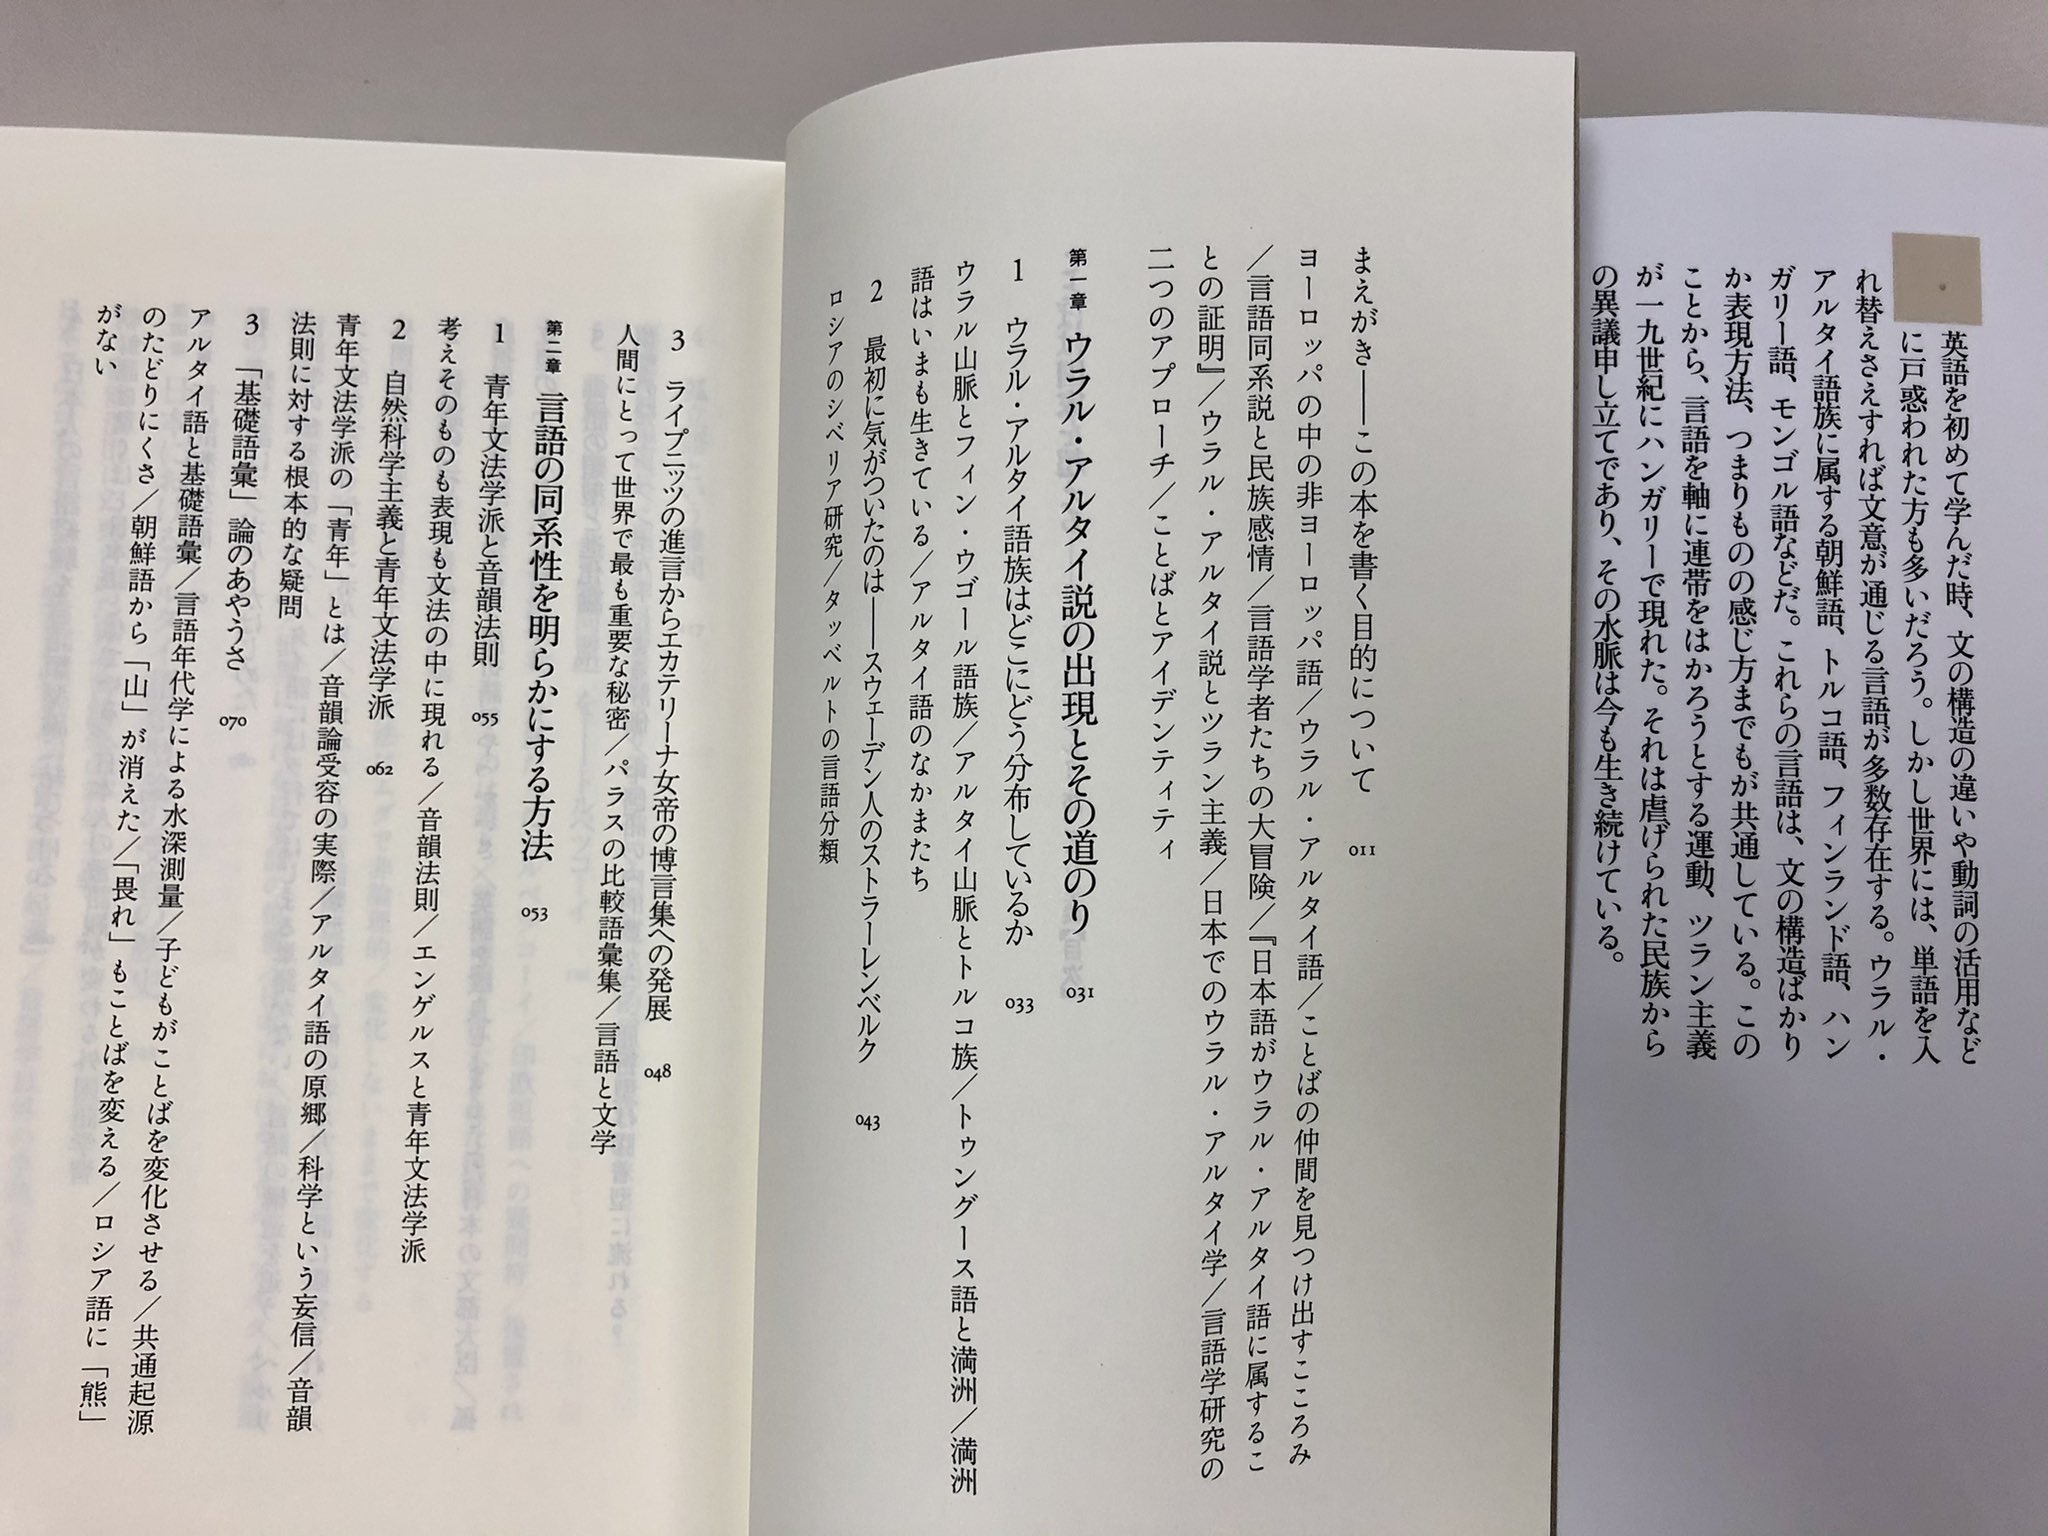 英語を初めて学んだ時、文の構造の違いや動詞の活用など
に戸惑われた方も多いだろう。しかし世界には、単語を入
れ替えさえすれば文意が通じる言語が多数存在する。ウラル・
アルタイ語族に属する朝鮮語、トルコ語、フィンランド語、ハン
ガリー語、モンゴル語などだ。これらの言語は、文の構造ばかり
か表現方法、つまりものの感じ方までもが共通している。この
ことから、言語を軸に連帯をはかろうとする運動、ツラン主義
が一九世紀にハンガリーで現れた。それは虐げられた民族から
の異議申し立てであり、その水脈は今も生き続けている。
まえがき――この本を書く目的について 011
ヨーロッパの中の非ヨーロッパ語/ウラル・アルタイ語/ことばの仲間を見つけ出すこころみ
/言語同系説と民族感情/言語学者たちの大冒険/『日本語がウラル・アルタイ語に属するこ
との証明』/ウラル・アルタイ説とツラン主義/日本でのウラル・アルタイ学/言語学研究の
二つのアプローチ/ことばとアイデンティティ
第一章 ウラル・アルタイ説の出現とその道のり 031
1 ウラル・アルタイ語族はどこにどう分布しているか 033
ウラル山脈とフィン・ウゴール語族/アルタイ山脈とトルコ族/トゥングース語と満洲/満洲
語はいまも生きている/アルタイ語のなかまたち
2 最初に気がついたのは――スウェーデン人のストラーレンベルク 043
ロシアのシベリア研究/タッベルトの言語分類
3 ライプニッツの進言からエカテリーナ女帝の博言集への発展 048
人間にとって世界で最も重要な秘密/パラスの比較語彙集/言語と文学
第二章 言語の同系性を明らかにする方法 053
1 青年文法学派と音韻法則 055
考えそのものも表現も文法の中に現れる/音韻法則/エンゲルスと青年文法学派
2 自然科学主義と青年文法学派 062
青年文法学派の「青年」とは/音韻論受容の実際/アルタイ語の原郷/科学という妄信/音韻
法則に対する根本的な疑問
3 「基礎語彙」論のあやうさ 070
アルタイ語と基礎語彙/言語年代学による水深測量/子どもがことばを変化させる/共通起源
のたどりにくさ/朝鮮語から「山」が消えた/「畏れ」もことばを変える/ロシア語に「熊」
がない